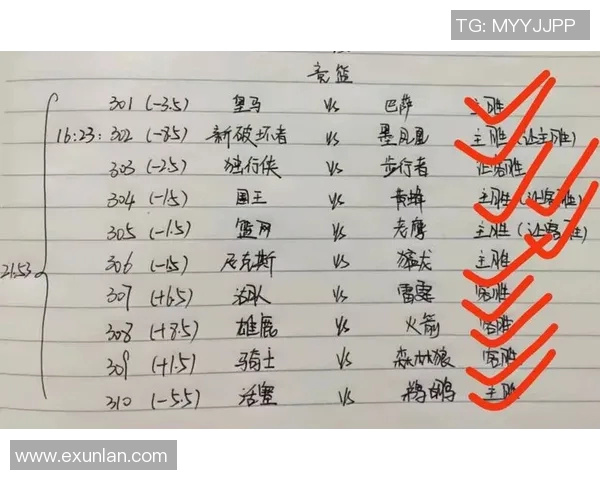 TG: MYYJJPP
竞篮
301 (-3.5) 皇马 vs 巴萨 主胜
16:23: 302 (-8.5) 新破坏者 vs 墨凤凰 主胜 (让主胜)
303 (-2.5) 独行侠 vs 步行者 让客胜
304 (-1.5) 国王 vs 黄蜂 主胜 (让客胜)
305 (-1.5) 篮网 vs 老鹰 主胜 (让客胜)
21:53 306 (-1.5) 尼克斯 vs 猛龙 主胜
307 (+6.5) vs 雷霆 客胜
308 (+8.5) 雄鹿 vs 火箭 客胜
309 (+1.5) 马奇士 vs 森林狼 客胜
310 (-5.5) 活塞 vs 鹈鹕 主胜
www.exunlan.com